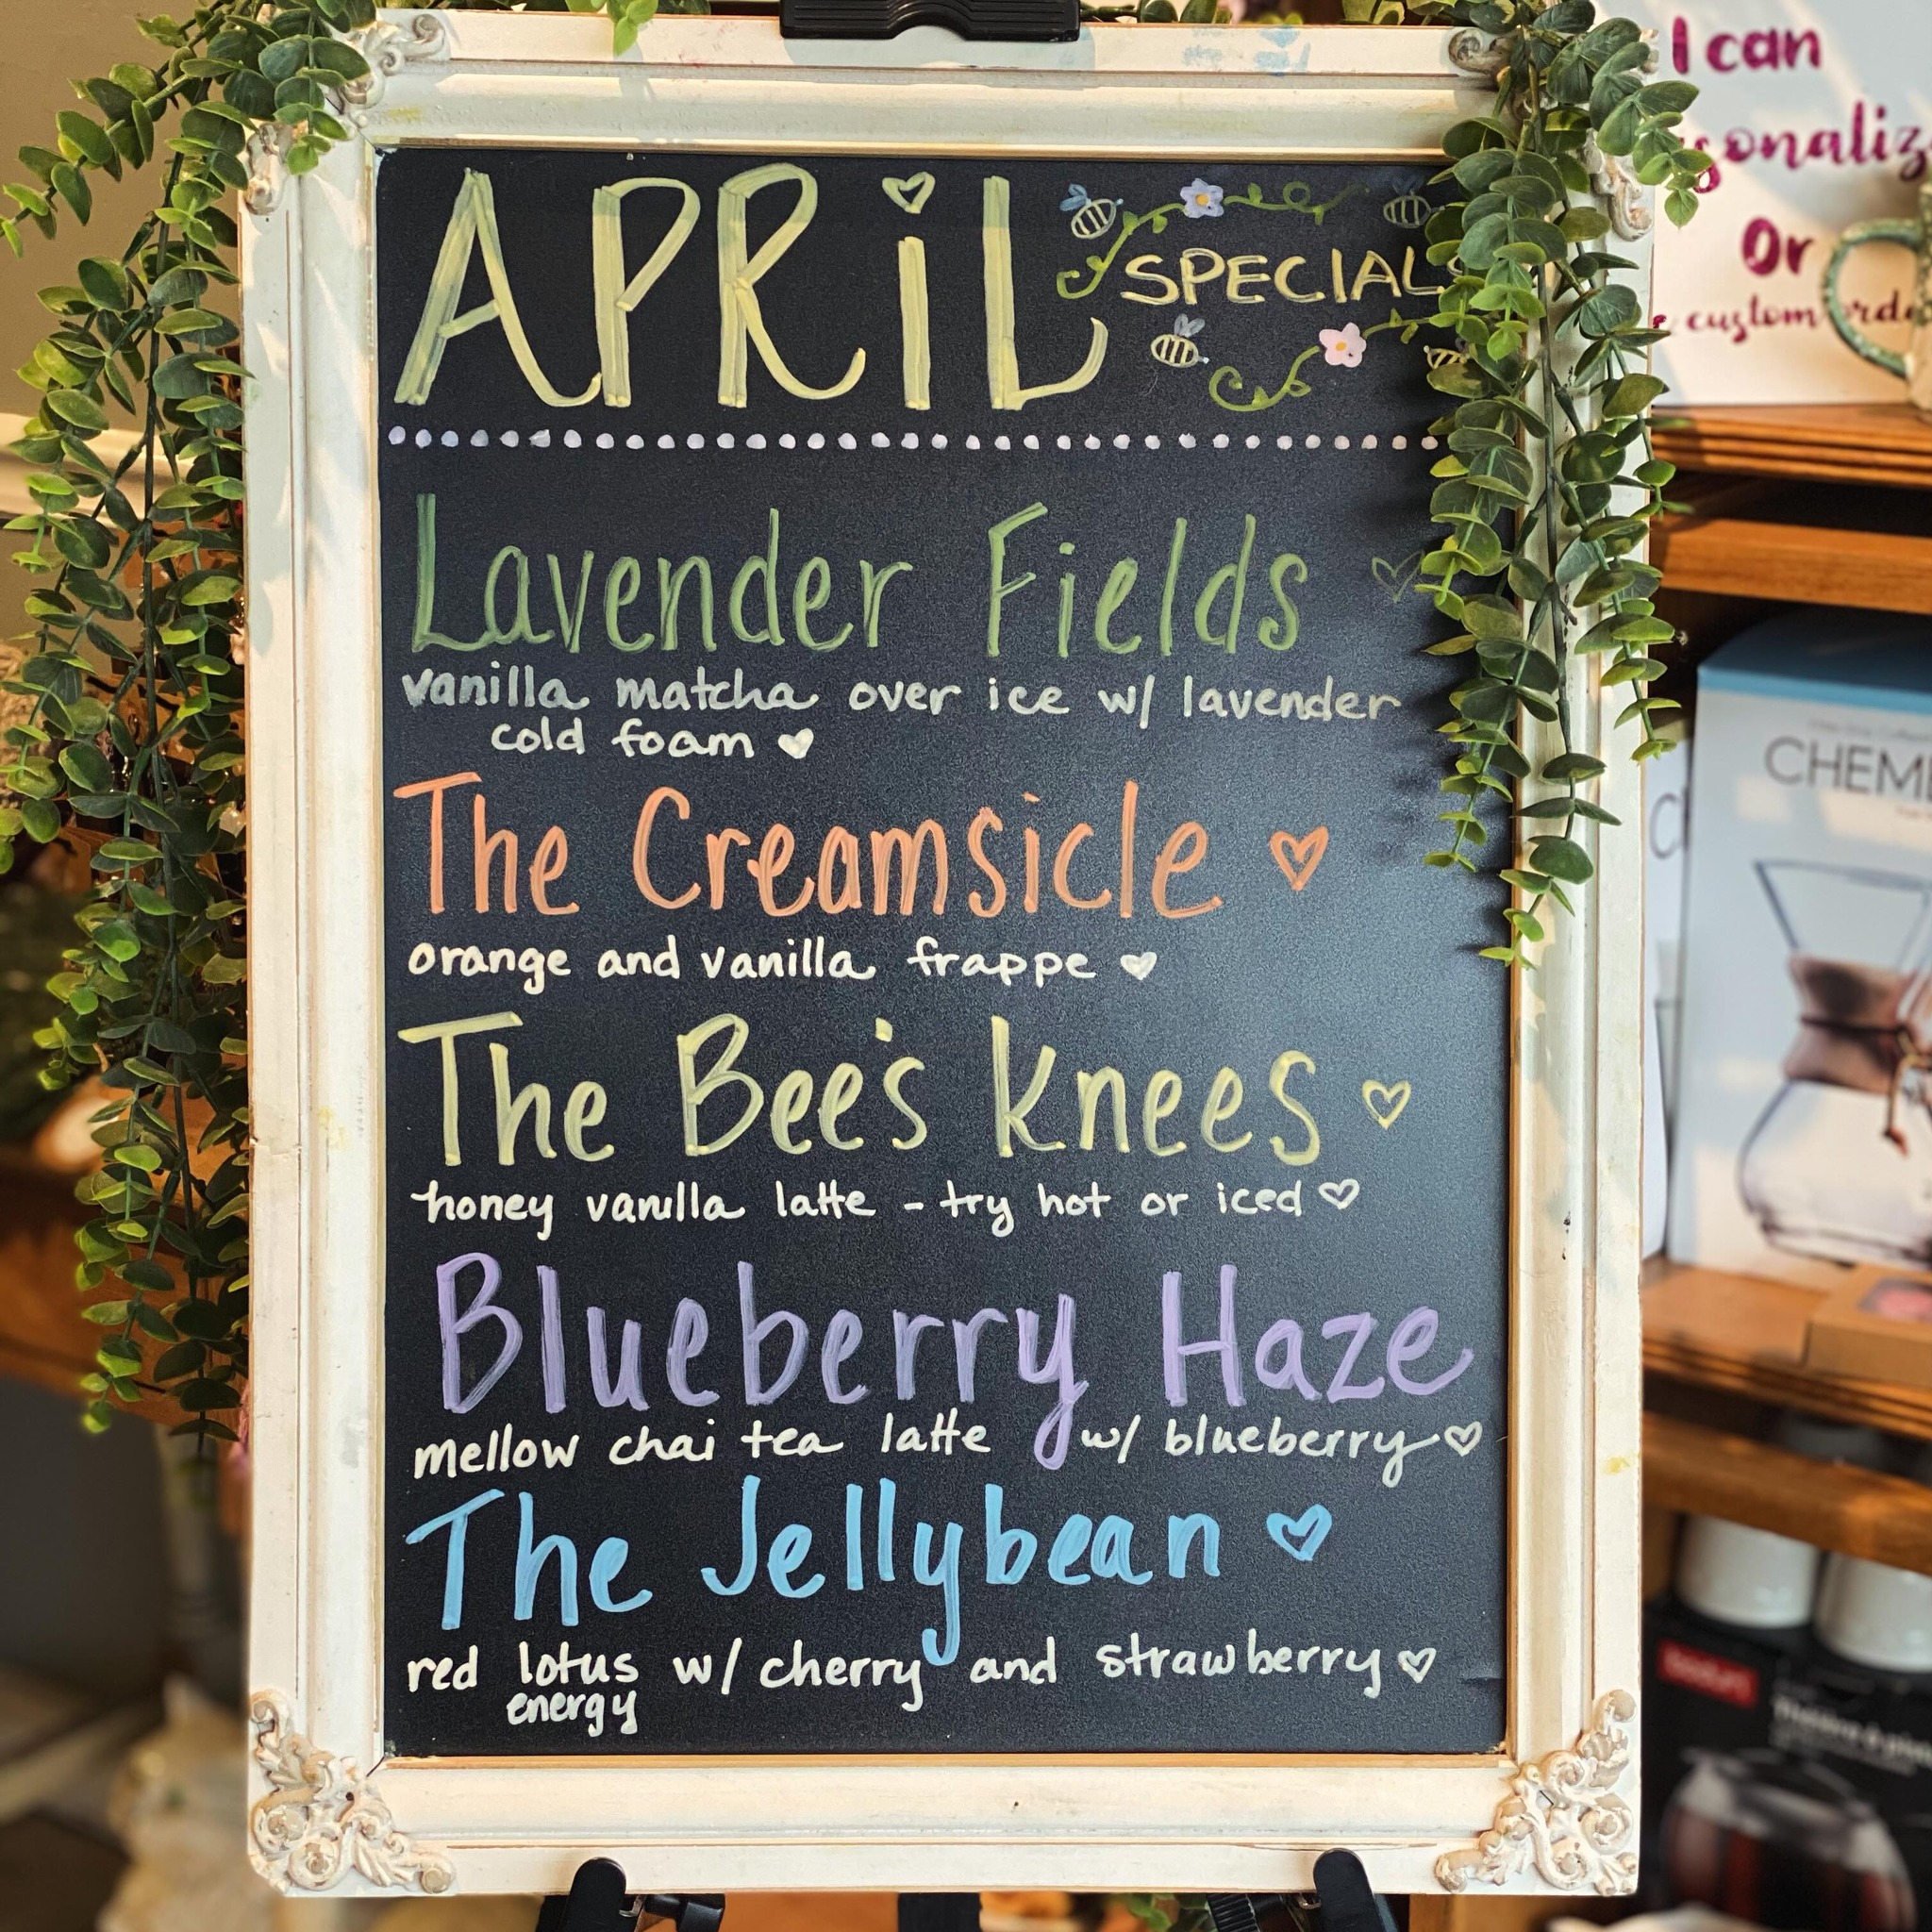 APRiL
SPECIALS
Lavender Fields
vanilla matcha over ice w/ lavender
cold foam
The Creamsicle
orange and vanilla frappe
The Bee's knees
honey vanilla latte - try hot or iced
Blueberry Haze
mellow chai tea latte w/ blueberry
The Jellybean
red lotus w/ cherry and strawberry
energy
I can
Or
custom
CHEME
bodum